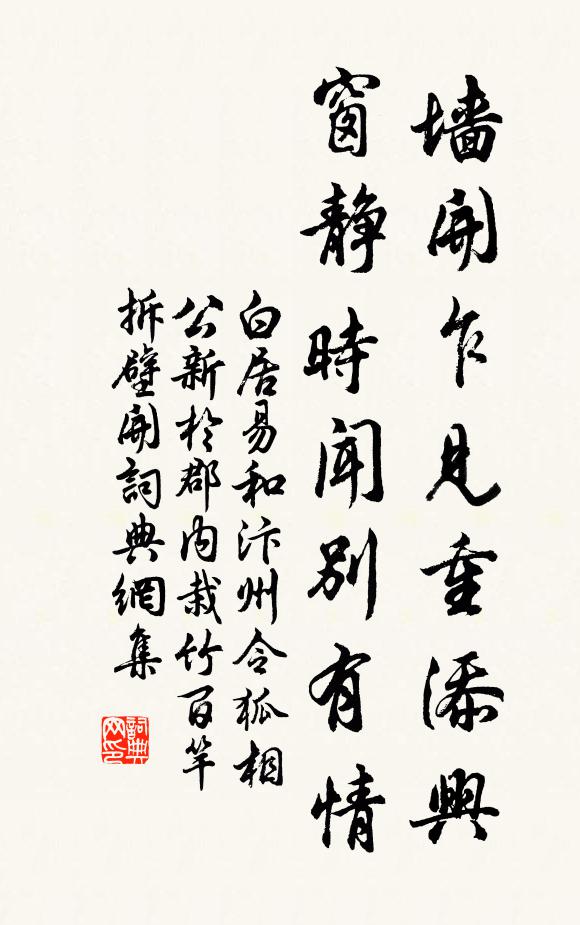 墻開乍見重添興
窗静時聞別有情
白居易和汴州令狐相
公新於郡内栽竹百竿
拆壁開詞典網集
詞典
网印